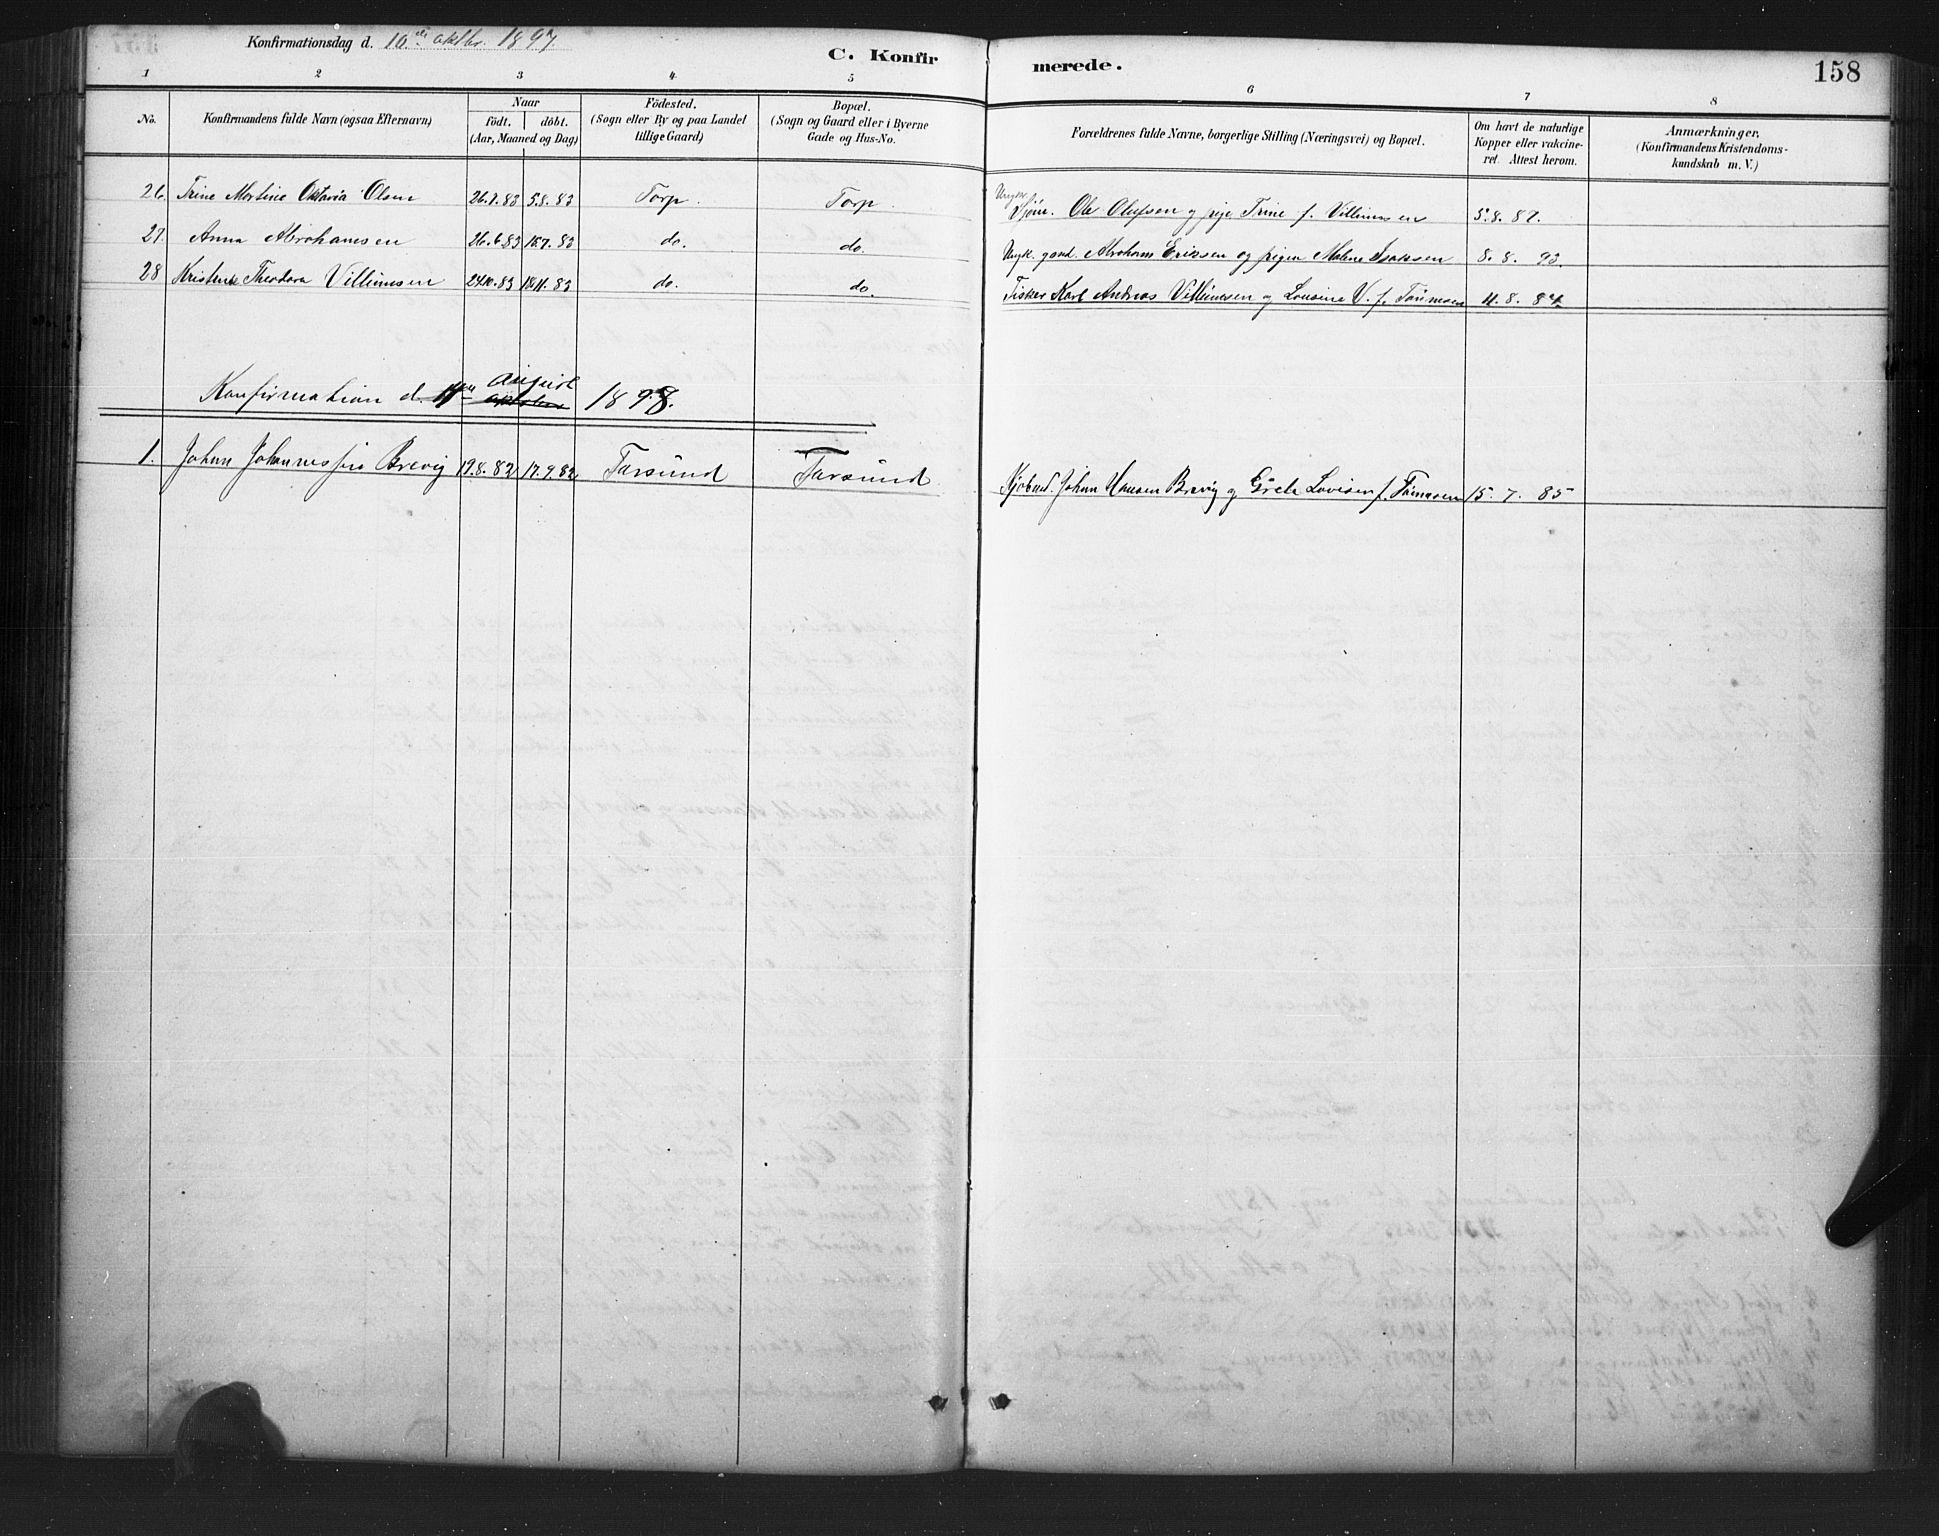 Konfirmationsdag d. 10 oktbr. 1897.
C. Konfirmerede.
158
1 2 3 4 5 6 7 8
No.
Konfirmandens fulde Navn (ogsaa Efternavn)
Naar
födt. döbt.
(Aar, Maaned og Dag)
Födested.
(Sogn eller By og paa Landet
tillige Gaard)
Bopæl.
(Sogn og Gaard eller i Byerne
Gade og Hus-No.
Forældrenes fulde Navne, borgerlige Stilling (Næringsvei) og Bopæl.
Om havt de naturlige
Kopper eller vakcine-
ret. Attest herom.
Anmærkninger,
(Konfirmandens Kristendoms-
kundskab m. V.)
26. Trine Martine Oktavia Olsen 26.1.83 5.8.83 Torp. Torp. Sjöm. Ole Olufsen og pige Trine f. Villumsen 5.8.87.
27. Anna Abrahamsen 26.6.83 15.7.83 do. do. Ungk. Abraham Eriksen og pigen Malene Isaksen 8.8.93.
28 Theodora Villumsen 24.10.83 18.11.83 do. do. Fisker Karl Andreas Villumsen og Lovisine V. f. 11.8.84
Konfirmation d. august 1898.
1. Johan Brevig 19.8.82 17.9.82 Farsund Farsund Johan Hansen Brevig og Grete Lovise f. 15.7.85